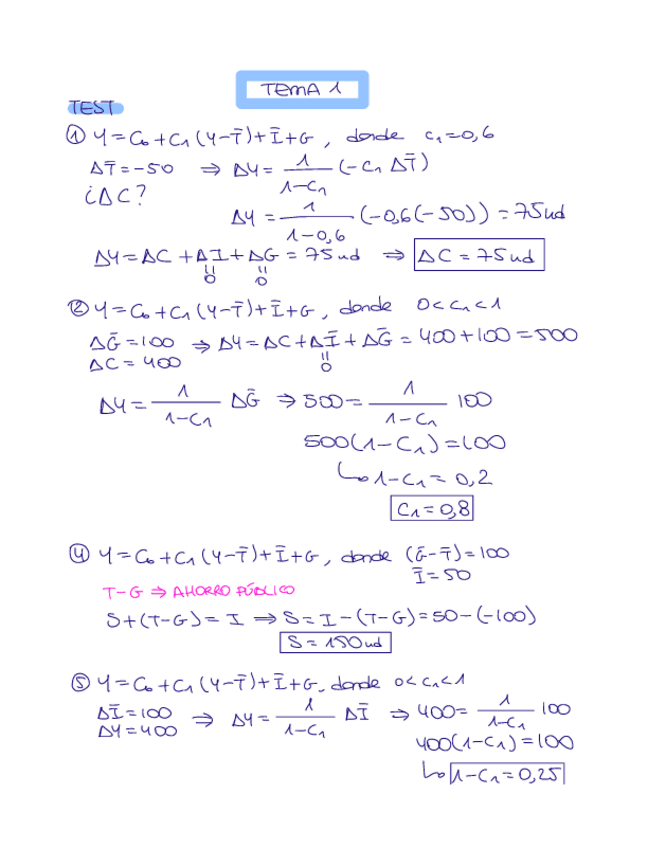 TEMA 1
TEST
① Y = C₀ + C₁ (Y - T̄) + Ī + G , donde c₁ = 0,6
ΔT̄ = -50 ⇒ ΔY = 1/(1-C₁) (-C₁ ΔT̄)
¿ΔC?
ΔY = 1/(1-0,6) (-0,6(-50)) = 75ud
ΔY = ΔC + ΔI + ΔG = 75ud ⇒ ΔC = 75ud
= 0 = 0
② Y = C₀ + C₁ (Y - T̄) + Ī + G , donde 0 < C₁ < 1
ΔḠ = 100 ⇒ ΔY = ΔC + ΔĪ + ΔḠ = 400 + 100 = 500
ΔC = 400 = 0
ΔY = 1/(1-C₁) ΔḠ ⇒ 500 = 1/(1-C₁) 100
500(1-C₁) = 100
↳ 1-C₁ = 0,2
C₁ = 0,8
④ Y = C₀ + C₁ (Y - T̄) + Ī + G , donde (Ḡ - T̄) = 100
Ī = 50
T-G ⇒ AHORRO PÚBLICO
S + (T-G) = I ⇒ S = I - (T-G) = 50 - (-100)
S = 150ud
⑤ Y = C₀ + C₁ (Y - T̄) + Ī + G, donde 0 < C₁ < 1
ΔĪ = 100 ⇒ ΔY = 1/(1-C₁) ΔĪ ⇒ 400 = 1/(1-C₁) 100
ΔY = 400
400(1-C₁) = 100
↳ 1-C₁ = 0,25